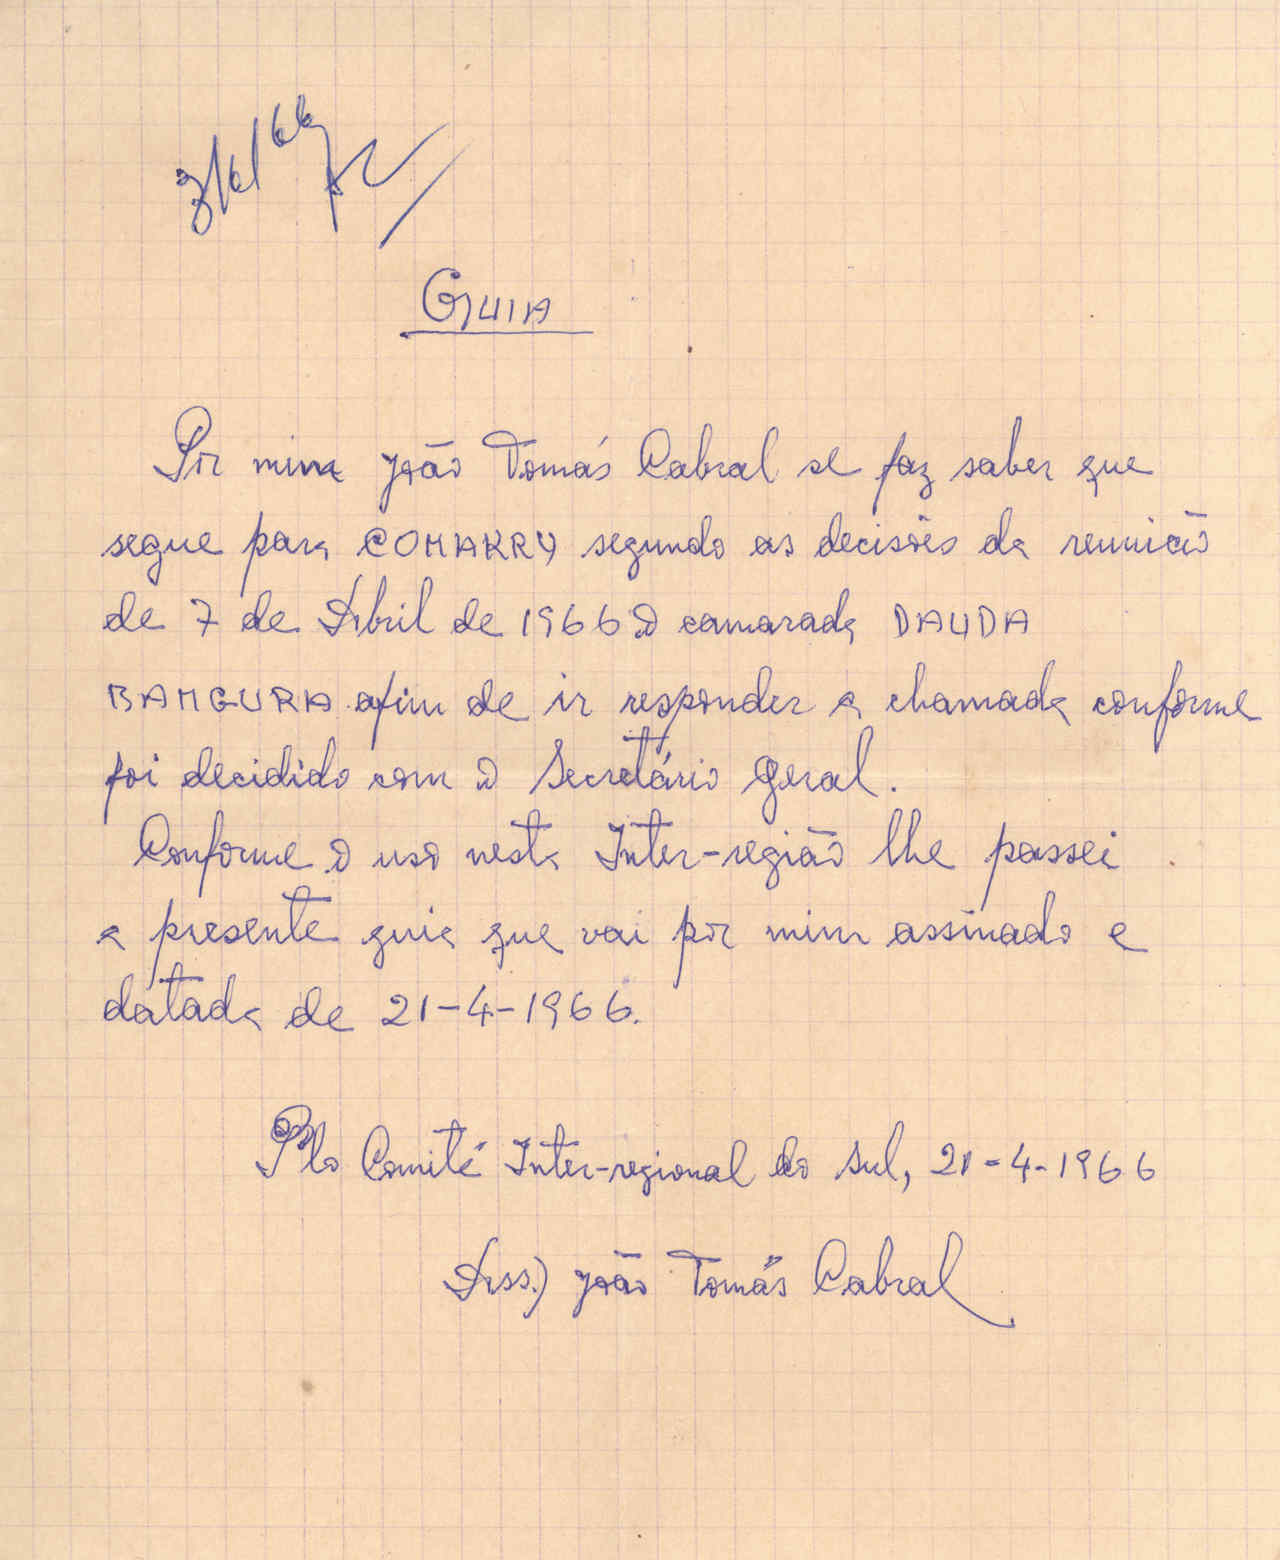 3/6/66
GUIA
Por mim João Tomás Cabral se faz saber que
segue para CONAKRY segundo as decisões da reunião
de 7 de Abril de 1966 o camarada DAUDA
BANGURA afim de ir responder a chamada conforme
foi decidido com o Secretário Geral.
Conforme o uso nesta Inter-região lhe passei
a presente guia que vai por mim assinado e
datada de 21-4-1966.
Plo Comité Inter-regional do Sul, 21-4-1966
Ass.) João Tomás Cabral